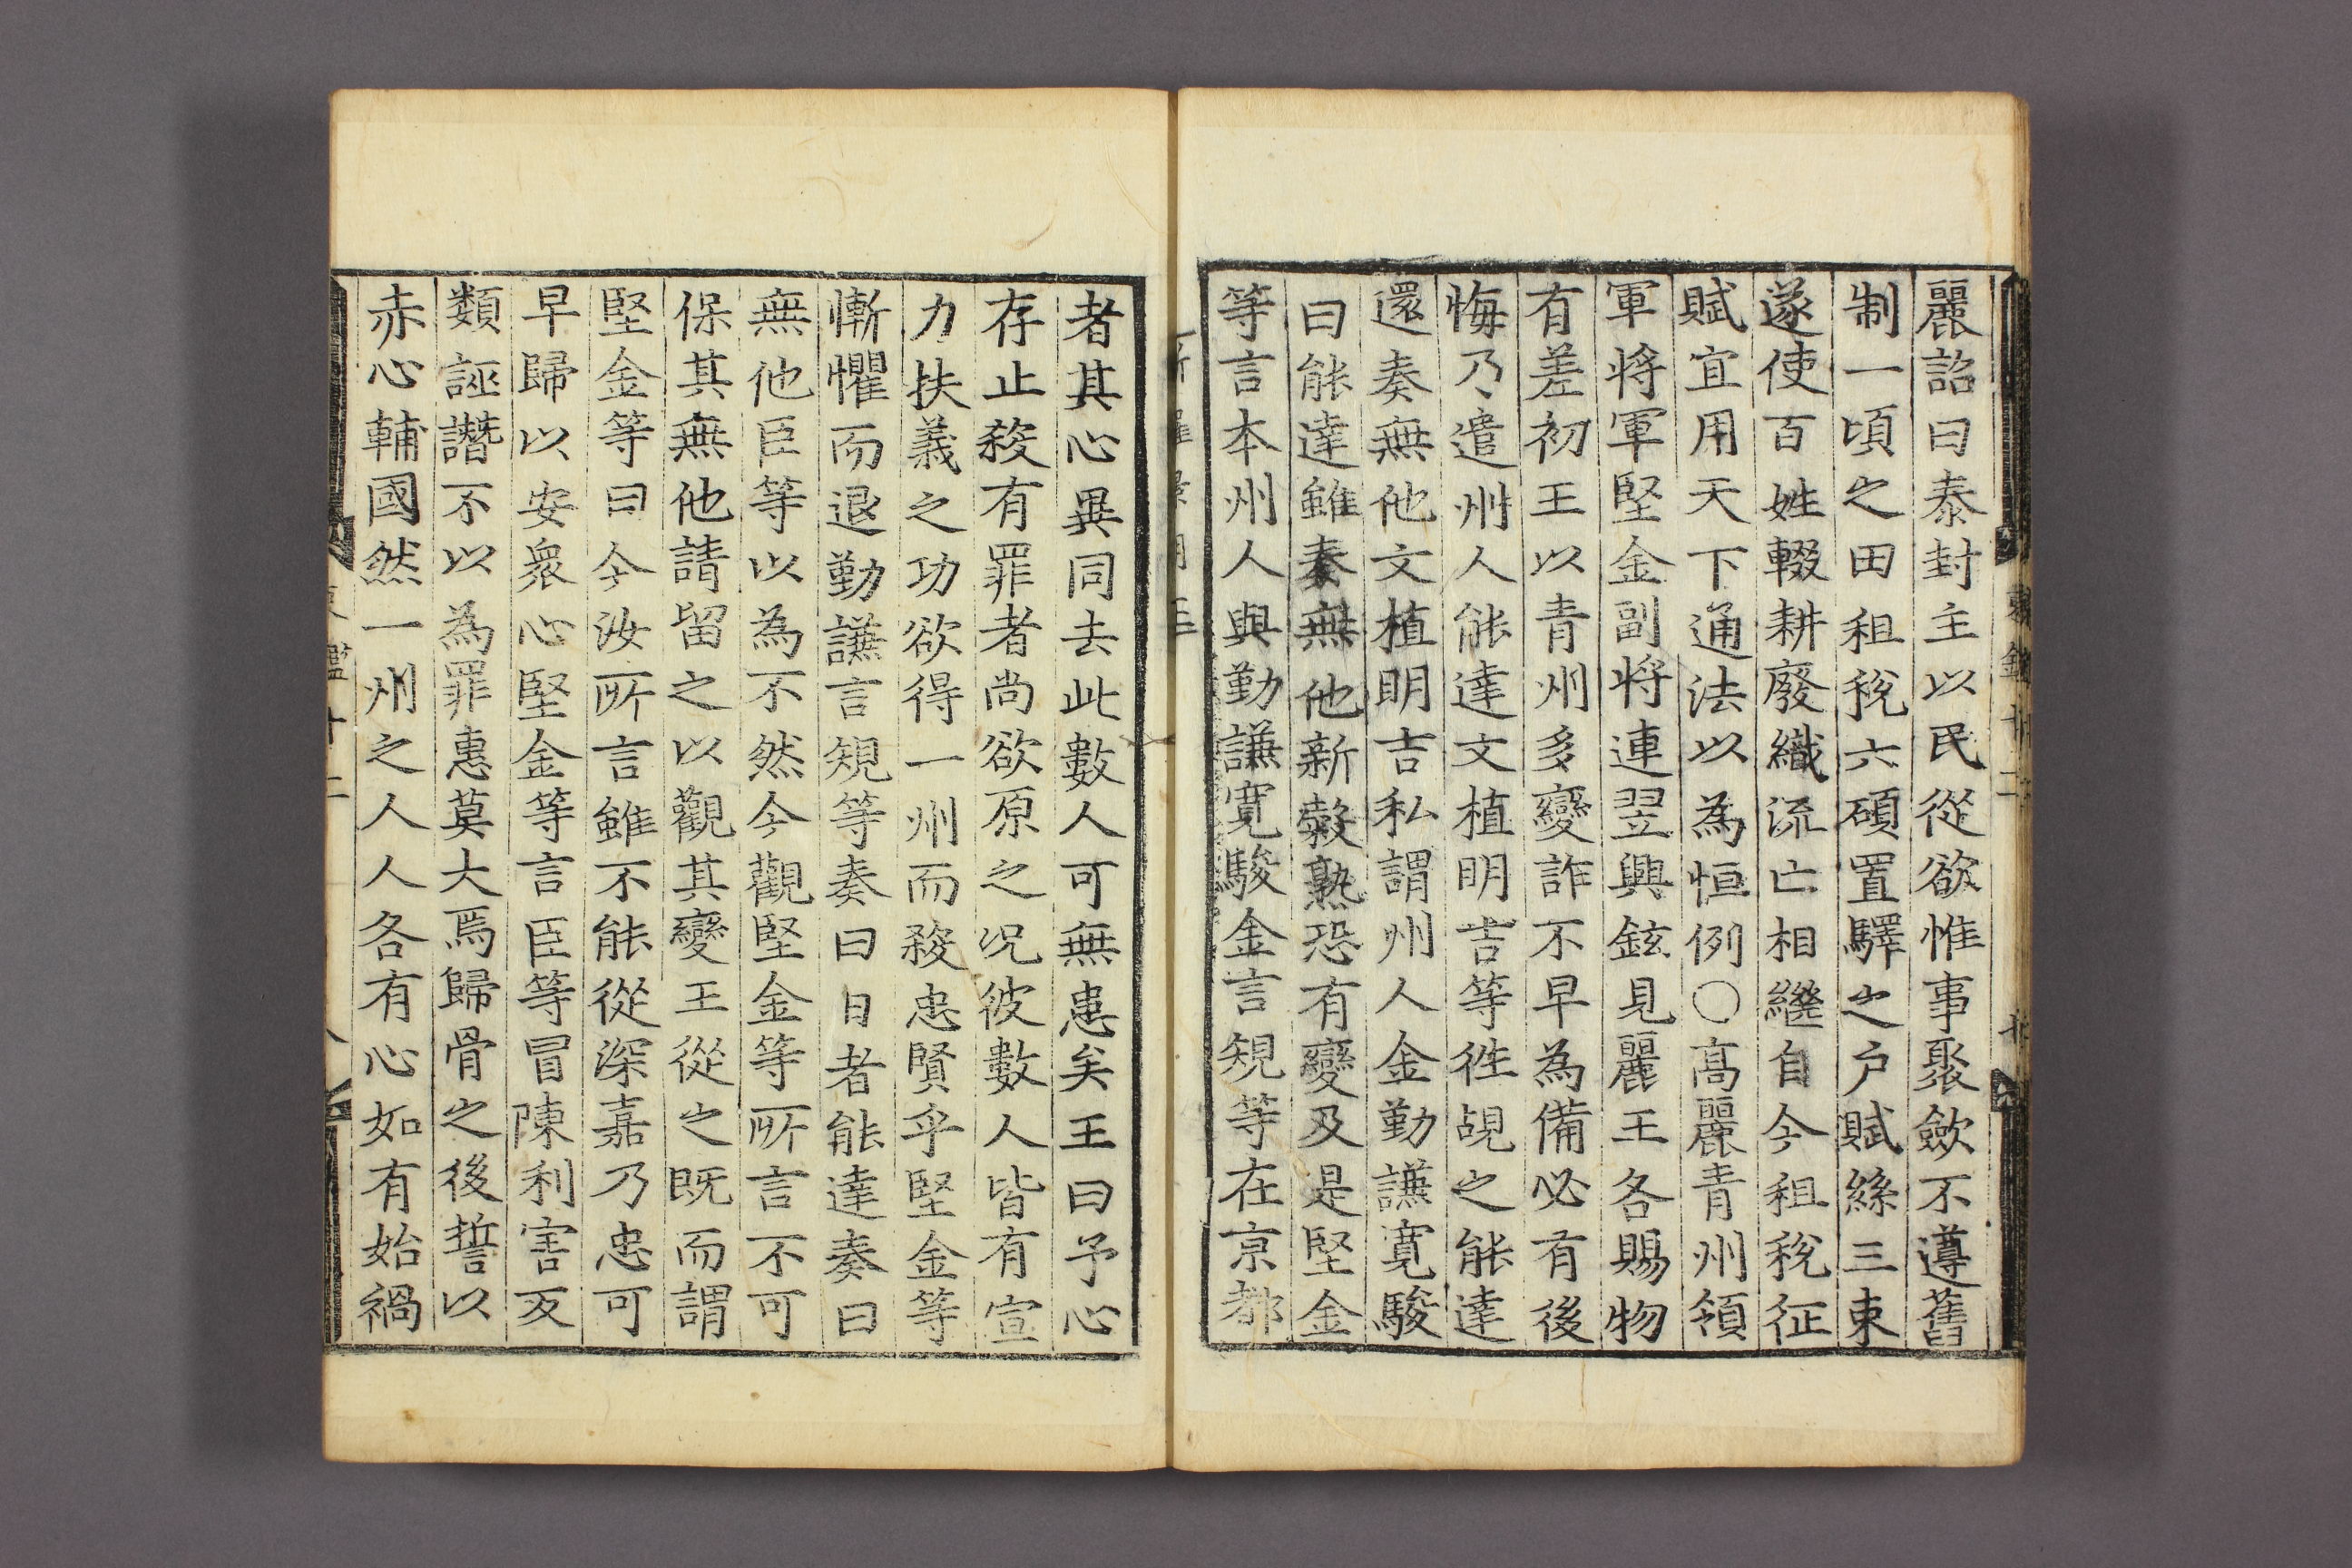 麗詔曰泰封主以民從欲惟事聚斂不遵舊
制一頃之田租稅六碩置驛之户賦絲三束
遂使百姓輟耕廢織流亡相繼自今租稅征
賦宜用天下通法以為恒例〇高麗青州領
軍將軍堅金副將連翌興鉉見麗王各賜物
有差初王以青州多變詐不早為備必有後
悔乃遣州人能達文植明吉等徃覘之能達
還奏無他文植明吉私謂州人金勤謙寬駿
曰能達雖奏無他新糓熟恐有變及是堅金
等言本州人與勤謙寬駿金言規等在京都
者其心異同去此數人可無患矣王曰予心
存止殺有罪者尚欲原之况彼數人皆有宣
力扶義之功欲得一州而殺忠賢乎堅金等
慚懼而退勤謙言規等奏曰日者能達奏曰
無他臣等以為不然今觀堅金等所言不可
保其無他請留之以觀其變王從之既而謂
堅金等曰今汝所言雖不能從深嘉乃忠可
早歸以安衆心堅金等言臣等冒陳利害反
類誣譖不以為罪惠莫大焉歸骨之後誓以
赤心輔國然一州之人人各有心如有始禍